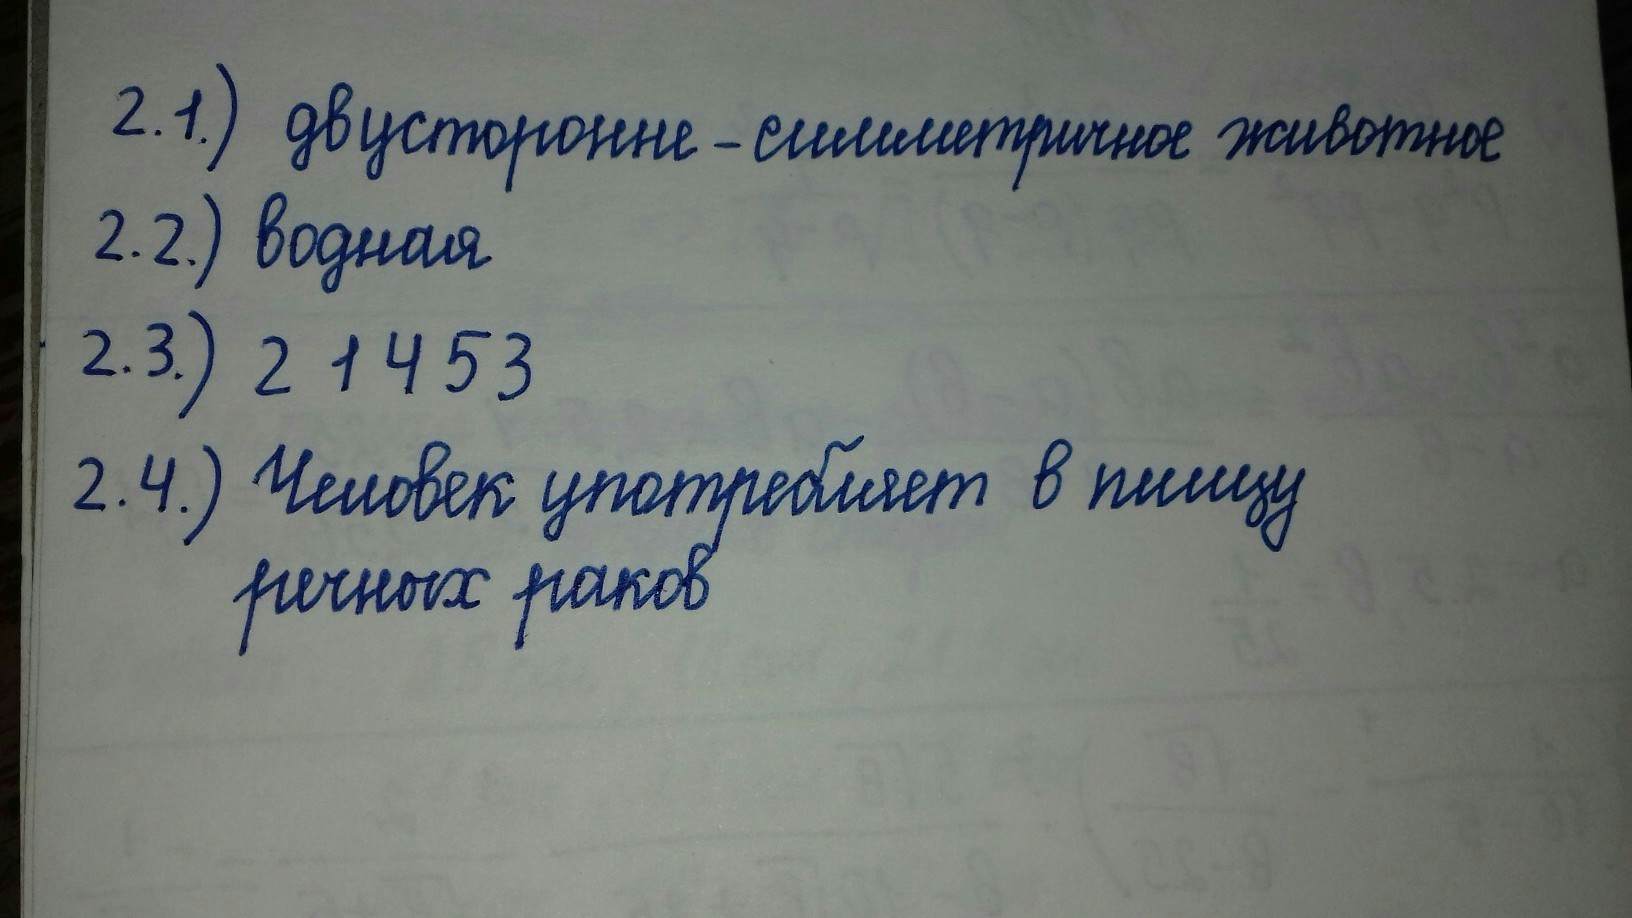 2.1.) двусторонне-симметричное животное
2.2.) водная
2.3.) 2 1 4 5 3
2.4.) Человек употребляет в пищу
речных раков